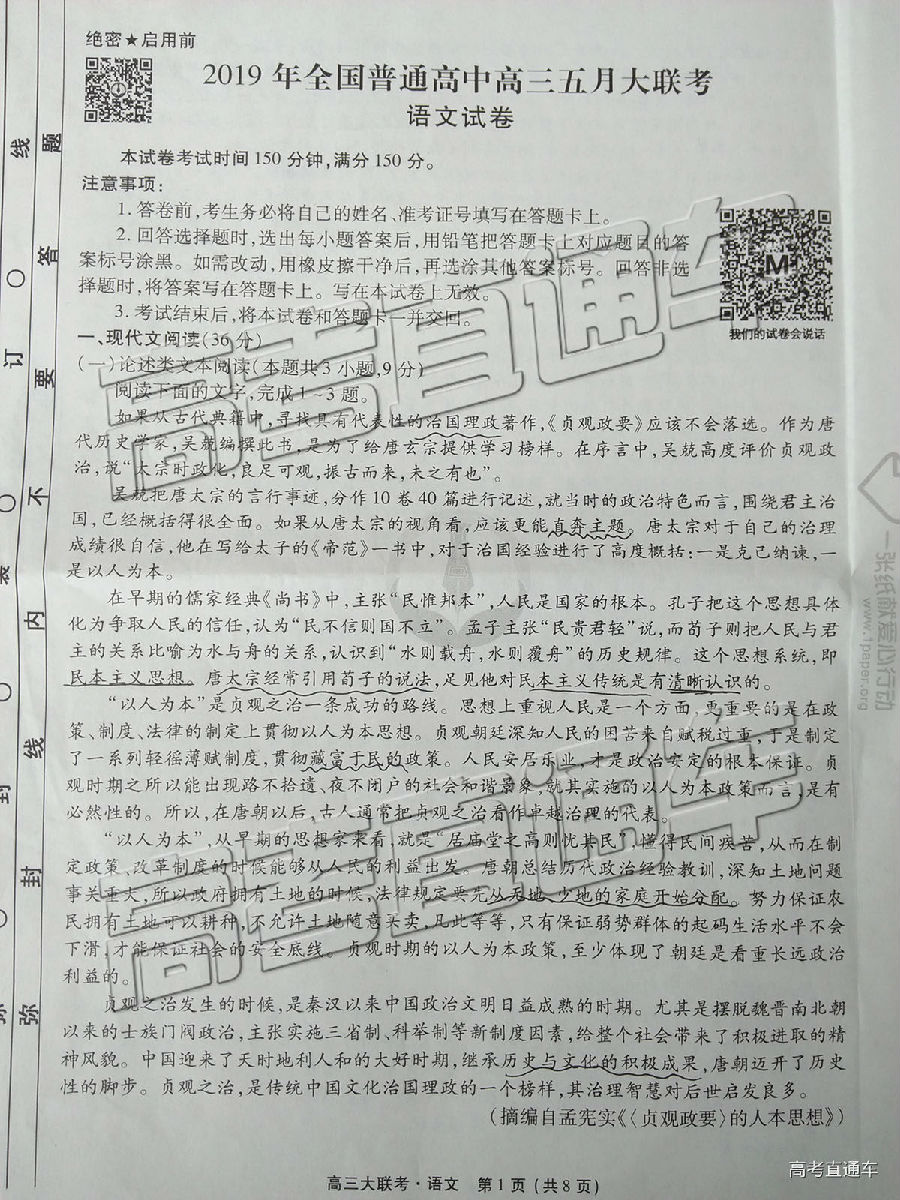 绝密★启用前
2019年全国普通高中高三五月大联考
语文试卷
本试卷考试时间150分钟,满分150分。
注意事项:
1.答卷前,考生务必将自己的姓名、准考证号填写在答题卡上。
2.回答选择题时,选出每小题答案后,用铅笔把答题卡上对应题目的答
案标号涂黑。如需改动,用橡皮擦干净后,再选涂其他答案标号。回答非选
择题时,将答案写在答题卡上。写在本试卷上无效。
3.考试结束后,将本试卷和答题卡一并交回。
我们的试卷会说话
一、现代文阅读(36分)
(一)论述类文本阅读(本题共3小题,9分)
阅读下面的文字,完成1~3题。
如果从古代典籍中,寻找具有代表性的治国理政著作,《贞观政要》应该不会落选。作为唐
代历史学家,吴兢编撰此书,是为了给唐玄宗提供学习榜样。在序言中,吴兢高度评价贞观政
治,说“太宗时政化,良足可观,振古而来,未之有也”。
吴兢把唐太宗的言行事迹,分作10卷40篇进行记述,就当时的政治特色而言,围绕君主治
国,已经概括得很全面。如果从唐太宗的视角看,应该更能直奔主题。唐太宗对于自己的治理
成绩很自信,他在写给太子的《帝范》一书中,对于治国经验进行了高度概括:一是克己纳谏,一
是以人为本。
在早期的儒家经典《尚书》中,主张“民惟邦本”,人民是国家的根本。孔子把这个思想具体
化为争取人民的信任,认为“民不信则国不立”。孟子主张“民贵君轻”说,而荀子则把人民与君
主的关系比喻为水与舟的关系,认识到“水则载舟,水则覆舟”的历史规律。这个思想系统,即
民本主义思想。唐太宗经常引用荀子的说法,足见他对民本主义传统是有清晰认识的。
“以人为本”是贞观之治一条成功的路线。思想上重视人民是一个方面,更重要的是在政
策、制度、法律的制定上贯彻以人为本思想。贞观朝廷深知人民的困苦来自赋税过重,于是制定
了一系列轻徭薄赋制度,贯彻藏富于民的政策。人民安居乐业,才是政治安定的根本保证。贞
观时期之所以能出现路不拾遗、夜不闭户的社会和谐景象,就其实施的以人为本政策而言,是有
必然性的。所以,在唐朝以后,古人通常把贞观之治看作卓越治理的代表。
“以人为本”,从早期的思想家来看,就是“居庙堂之高则忧其民”,懂得民间疾苦,从而在制
定政策、改革制度的时候能够从人民的利益出发。唐朝总结历代政治经验教训,深知土地问题
事关重大,所以政府拥有土地的时候,法律规定要先从无地、少地的家庭开始分配。努力保证农
民拥有土地可以耕种,不允许土地随意买卖,凡此等等,只有保证弱势群体的起码生活水平不会
下滑,才能保证社会的安全底线。贞观时期的以人为本政策,至少体现了朝廷是看重长远政治
利益的。
贞观之治发生的时候,是秦汉以来中国政治文明日益成熟的时期。尤其是摆脱魏晋南北朝
以来的士族门阀政治,主张实施三省制、科举制等新制度因素,给整个社会带来了积极进取的精
神风貌。中国迎来了天时地利人和的大好时期,继承历史与文化的积极成果,唐朝迈开了历史
性的脚步。贞观之治,是传统中国文化治国理政的一个榜样,其治理智慧对后世启发良多。
(摘编自孟宪实《〈贞观政要〉的人本思想》)
高三大联考·语文 第1页(共8页)
高考直通车
高考直通车
高考直通车
高考直通车
一张纸献爱心行动
www.1paper.org
弥
封
线
内
不
要
答
题
封
○
装
○
订
○
线